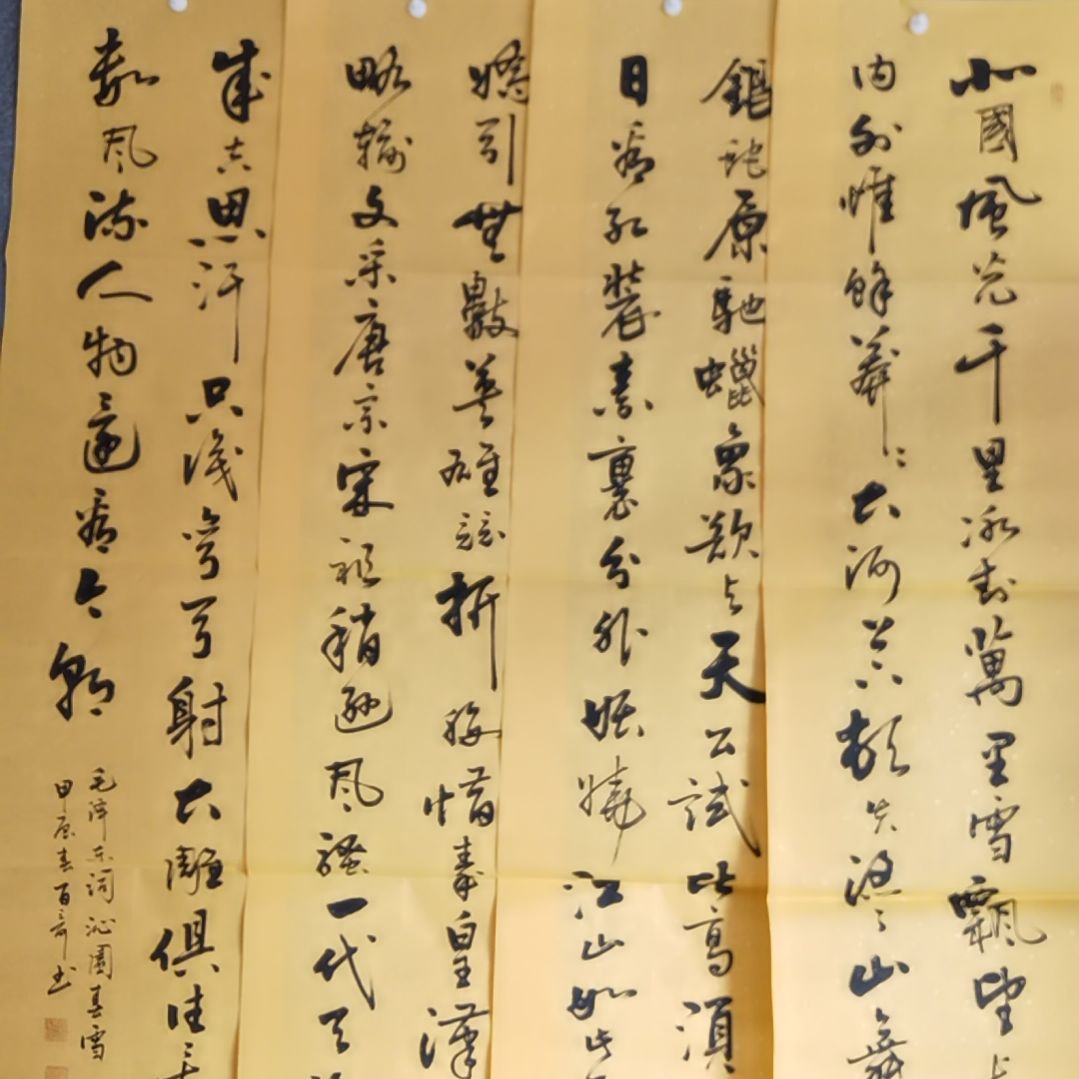 北國風光千里冰封萬里雪飄望
内外惟餘莽〻大河上下頓失滔〻山舞
銀蛇原馳蠟象欲与天公試比高須
日看紅裝素裹分外妖嬈江山如此
嬌引無數英雄競折腰惜秦皇漢
略輸文采唐宗宋祖稍遜风騷一代天
成吉思汗只識彎弓射大雕俱往矣
數风流人物還看今朝
毛泽东词沁園春雪
甲辰春百奇书